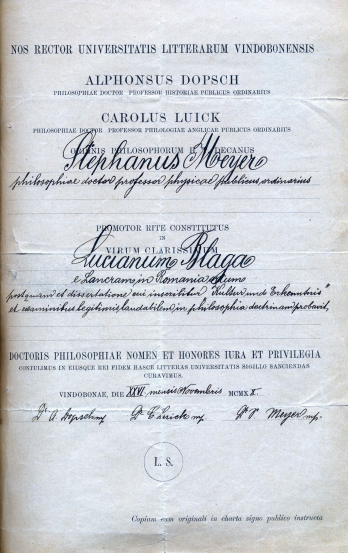 NOS RECTOR UNIVERSITATIS LITTERARUM VINDOBONENSIS
ALPHONSUS DOPSCH
PHILOSOPHIAE DOCTOR PROFESSOR HISTORIAE PUBLICUS ORDINARIUS
CAROLUS LUICK
PHILOSOPHIAE DOCTOR PROFESSOR PHILOLOGIAE ANGLICAE PUBLICUS ORDINARIUS
ORDINIS PHILOSOPHORUM DECANUS
Stephanus Meyer
philosophiae doctor professor physicae publicus ordinarius
PROMOTOR RITE CONSTITUTUS
IN
VIRUM CLARISSIMUM
Lucianum Blaga
e Lancram in Romania
postquam et dissertatione cui inscribitur "Kultur und Erkenntnis"
et examinibus legitimis laudabilem in philosophia doctrinam probavit,
DOCTORIS PHILOSOPHIAE NOMEN ET HONORES IURA ET PRIVILEGIA
CONTULIMUS IN EIUSQUE REI FIDEM HASCE LITTERAS UNIVERSITATIS SIGILLO SANCIENDAS
CURAVIMUS.
VINDOBONAE, DIE XXVI mensis Novembris MCMX
Dr A. Dopsch mp. Dr Luick mp. Dr Meyer mp.
L. S.
Copiam cum originali in charta signo publico instructa